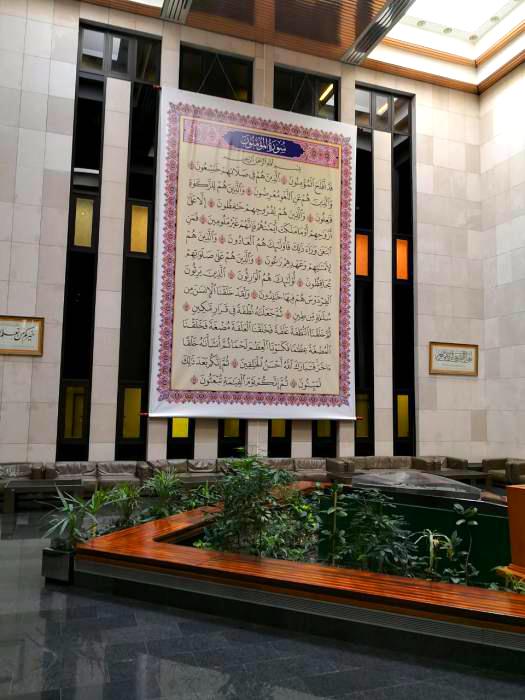 سُورَةُ المُؤْمِنُونَ
بِسْمِ اللَّهِ الرَّحْمَٰنِ الرَّحِيمِ
قَدْ أَفْلَحَ الْمُؤْمِنُونَ الَّذِينَ هُمْ فِي صَلَاتِهِمْ خَٰشِعُونَ
وَالَّذِينَ هُمْ عَنِ اللَّغْوِ مُعْرِضُونَ وَالَّذِينَ هُمْ لِلزَّكَوٰةِ
فَٰعِلُونَ وَالَّذِينَ هُمْ لِفُرُوجِهِمْ حَٰفِظُونَ إِلَّا عَلَىٰ
أَزْوَٰجِهِمْ أَوْ مَا مَلَكَتْ أَيْمَٰنُهُمْ فَإِنَّهُمْ غَيْرُ مَلُومِينَ فَمَنِ
ابْتَغَىٰ وَرَاءَ ذَٰلِكَ فَأُولَٰئِكَ هُمُ الْعَادُونَ وَالَّذِينَ هُمْ
لِأَمَٰنَٰتِهِمْ وَعَهْدِهِمْ رَٰعُونَ وَالَّذِينَ هُمْ عَلَىٰ صَلَوَٰتِهِمْ
يُحَافِظُونَ أُولَٰئِكَ هُمُ الْوَٰرِثُونَ الَّذِينَ يَرِثُونَ
الْفِرْدَوْسَ هُمْ فِيهَا خَٰلِدُونَ وَلَقَدْ خَلَقْنَا الْإِنسَٰنَ مِن
سُلَٰلَةٍ مِّن طِينٍ ثُمَّ جَعَلْنَٰهُ نُطْفَةً فِي قَرَارٍ مَّكِينٍ
ثُمَّ خَلَقْنَا النُّطْفَةَ عَلَقَةً فَخَلَقْنَا الْعَلَقَةَ مُضْغَةً فَخَلَقْنَا
الْمُضْغَةَ عِظَٰمًا فَكَسَوْنَا الْعِظَٰمَ لَحْمًا ثُمَّ أَنشَأْنَٰهُ خَلْقًا
ءَاخَرَ فَتَبَارَكَ اللَّهُ أَحْسَنُ الْخَٰلِقِينَ ثُمَّ إِنَّكُم بَعْدَ ذَٰلِكَ
لَمَيِّتُونَ ثُمَّ إِنَّكُمْ يَوْمَ الْقِيَٰمَةِ تُبْعَثُونَ